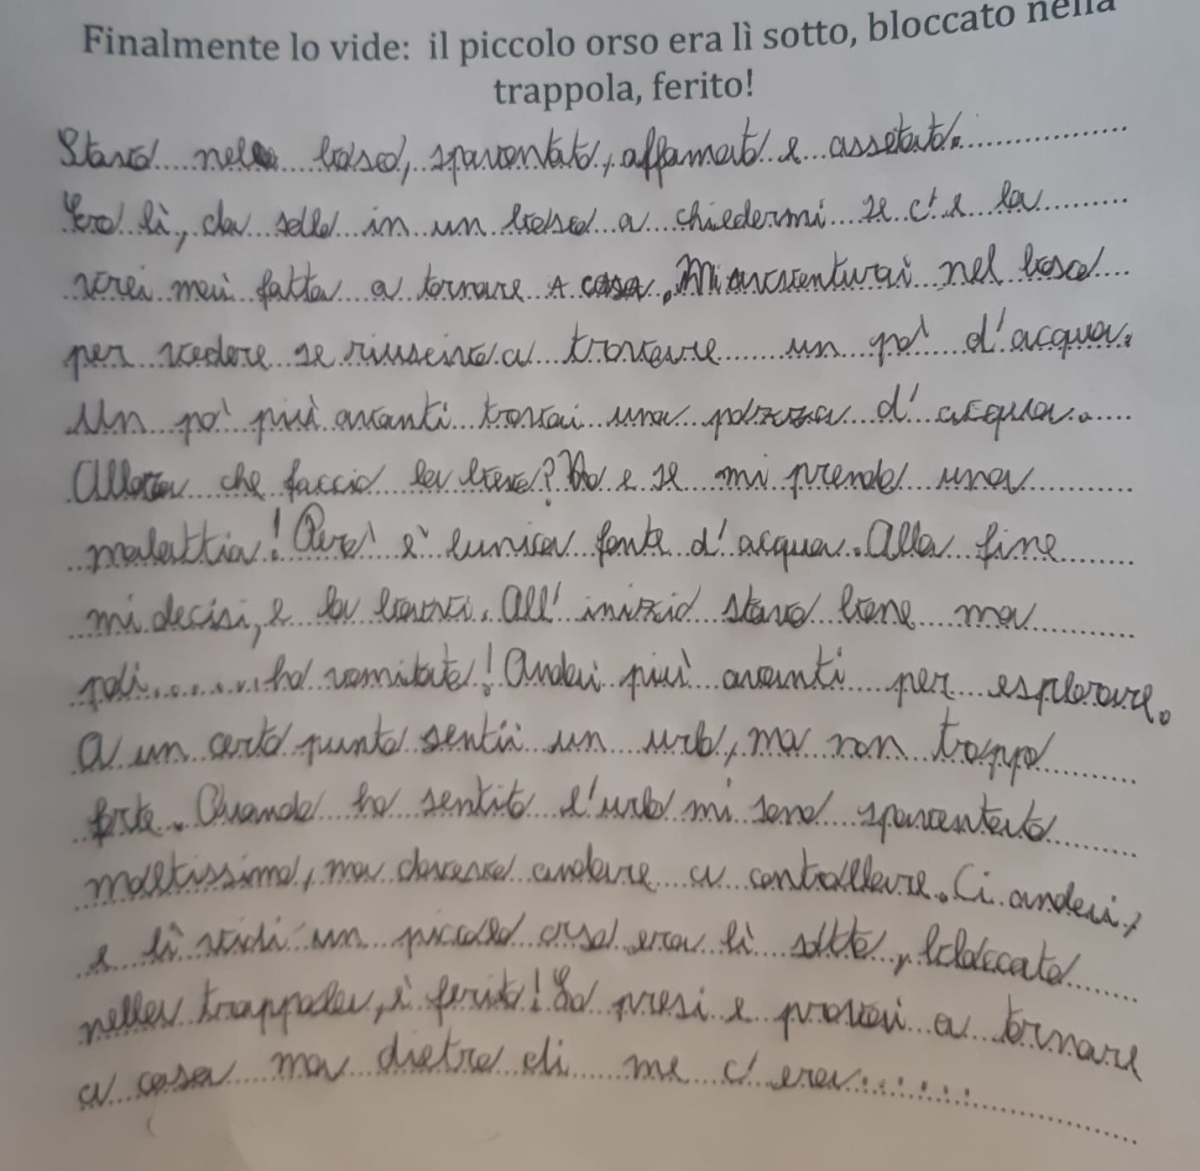 Finalmente lo vide: il piccolo orso era lì sotto, bloccato nella
trappola, ferito!
Stavo nel bosco, spaventato, affamato e assetato.
Ero lì, da solo in un bosco a chiedermi se c'e la
verei mai fatta a tornare a casa. Mi avventurai nel bosco
per vedere se riuscivo a trovare un po' d'acqua.
Un po' più avanti trovai una pozza d'acqua.
Allora che faccio la bevo? No e se mi prendo una
malattia! Però è lunica fonte d'acqua. Alla fine
mi decisi, e la bevvi. All'inizio stavo bene ma
poi.........ho vomitato! Andai più avanti per esplorare.
A un certo punto sentii un urlo, ma non troppo
forte. Quando ho sentito l'urlo mi sono spaventato
moltissimo, ma dovevo andare a controllare. Ci andai,
e lì vidi un piccolo orso era lì sotto, bloccato
nella trappola, è ferito! Lo presi e provai a tornare
a casa ma dietro di me c'era.......